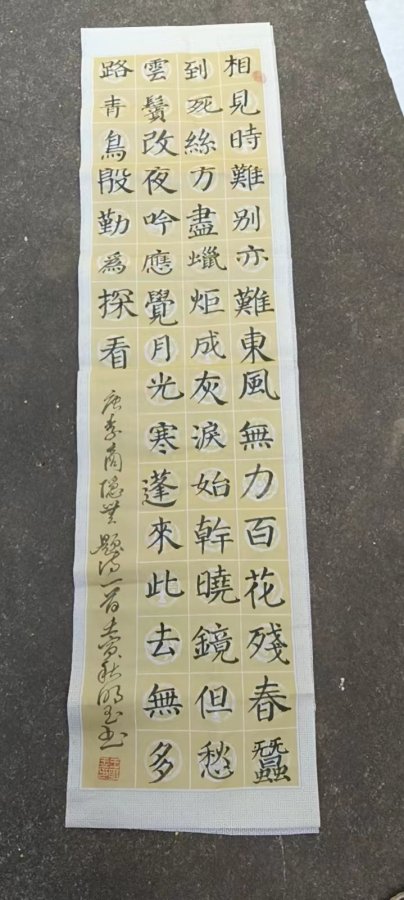 相見時難別亦難東風無力百花殘春蠶
到死絲方盡蠟炬成灰淚始幹曉鏡但愁
雲鬢改夜吟應覺月光寒蓬來此去無多
路青鳥殷勤為探看
唐李商隐無题诗一首壬寅秋明玉书